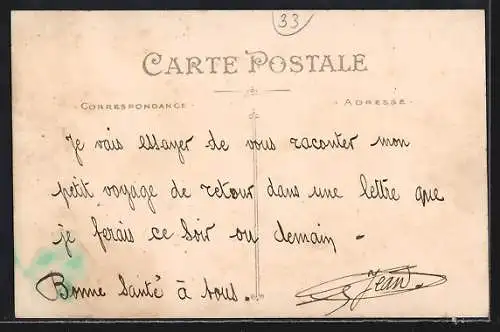 33
CARTE POSTALE
CORRESPONDANCE
ADRESSE
Je vais essayer de vous raconter mon
petit voyage de retour dans une lettre que
je ferais ce soir ou demain -
Bonne Santé à tous.
Jean